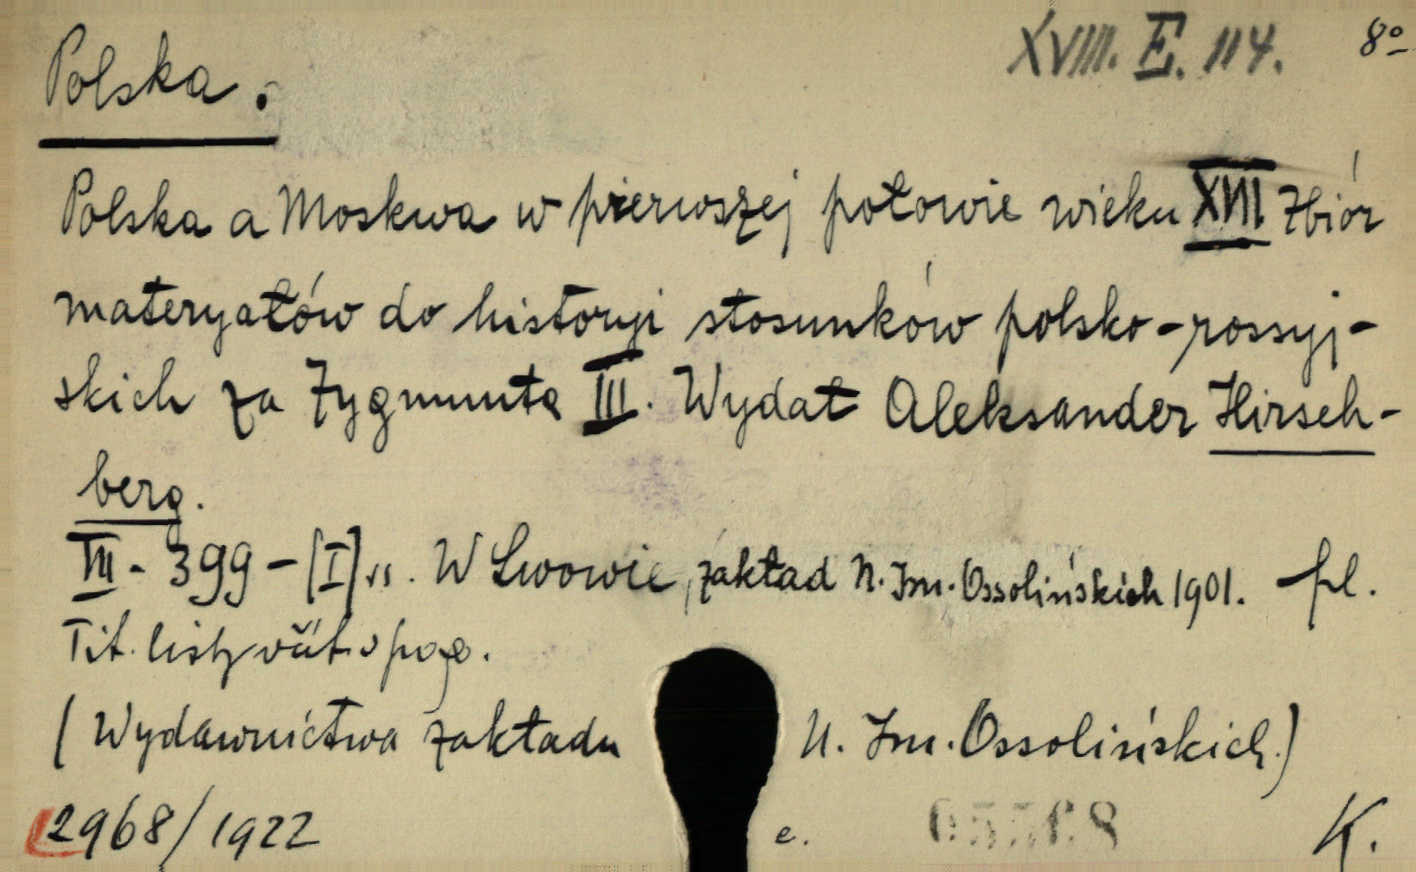 Polska.
XVIII. E. 114. 8º
Polska a Moskwa w pierwszej połowie wieku XVII Zbiór
materyałów do historyi stosunków polsko-rossyj-
skich za Zygmunta III. Wydał Aleksander Hirsch-
berg.
III - 399 - [I] W Lwowie, zakład N. Im. Ossolińskich 1901. pl.
Tit. listy
(Wydawnictwa zakładu N. Im. Ossolińskich.)
2968/1922 e. K.